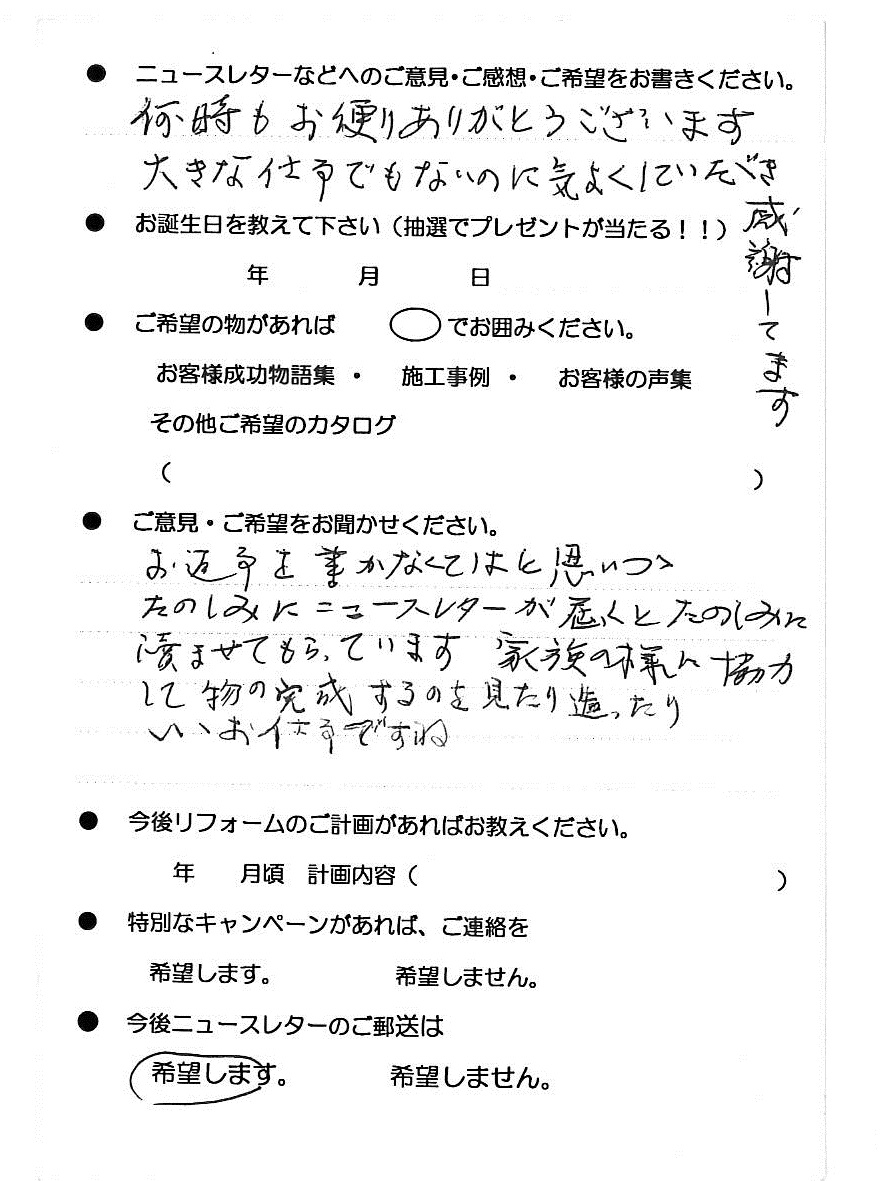 ● ニュースレターなどへのご意見・ご感想・ご希望をお書きください。
何時もお便りありがとうございます
大きな仕事でもないのに気よくしていただき
感謝してます
● お誕生日を教えて下さい（抽選でプレゼントが当たる！！）
年 月 日
● ご希望の物があれば ◯ でお囲みください。
お客様成功物語集 ・ 施工事例 ・ お客様の声集
その他ご希望のカタログ
（ ）
● ご意見・ご希望をお聞かせください。
お返事を書かなくてはと思いつゝ
たのしみにニュースレターが届くとたのしみに
読ませてもらっています 家族の様に協力
して物の完成するのを見たり造ったり
いゝお仕事ですね
● 今後リフォームのご計画があればお教えください。
年 月頃 計画内容（ ）
● 特別なキャンペーンがあれば、ご連絡を
希望します。 希望しません。
● 今後ニュースレターのご郵送は
希望します。 希望しません。